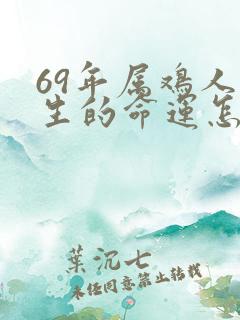 69年属鸡人
生的命运怎
葉沉七
未经同意禁止转载